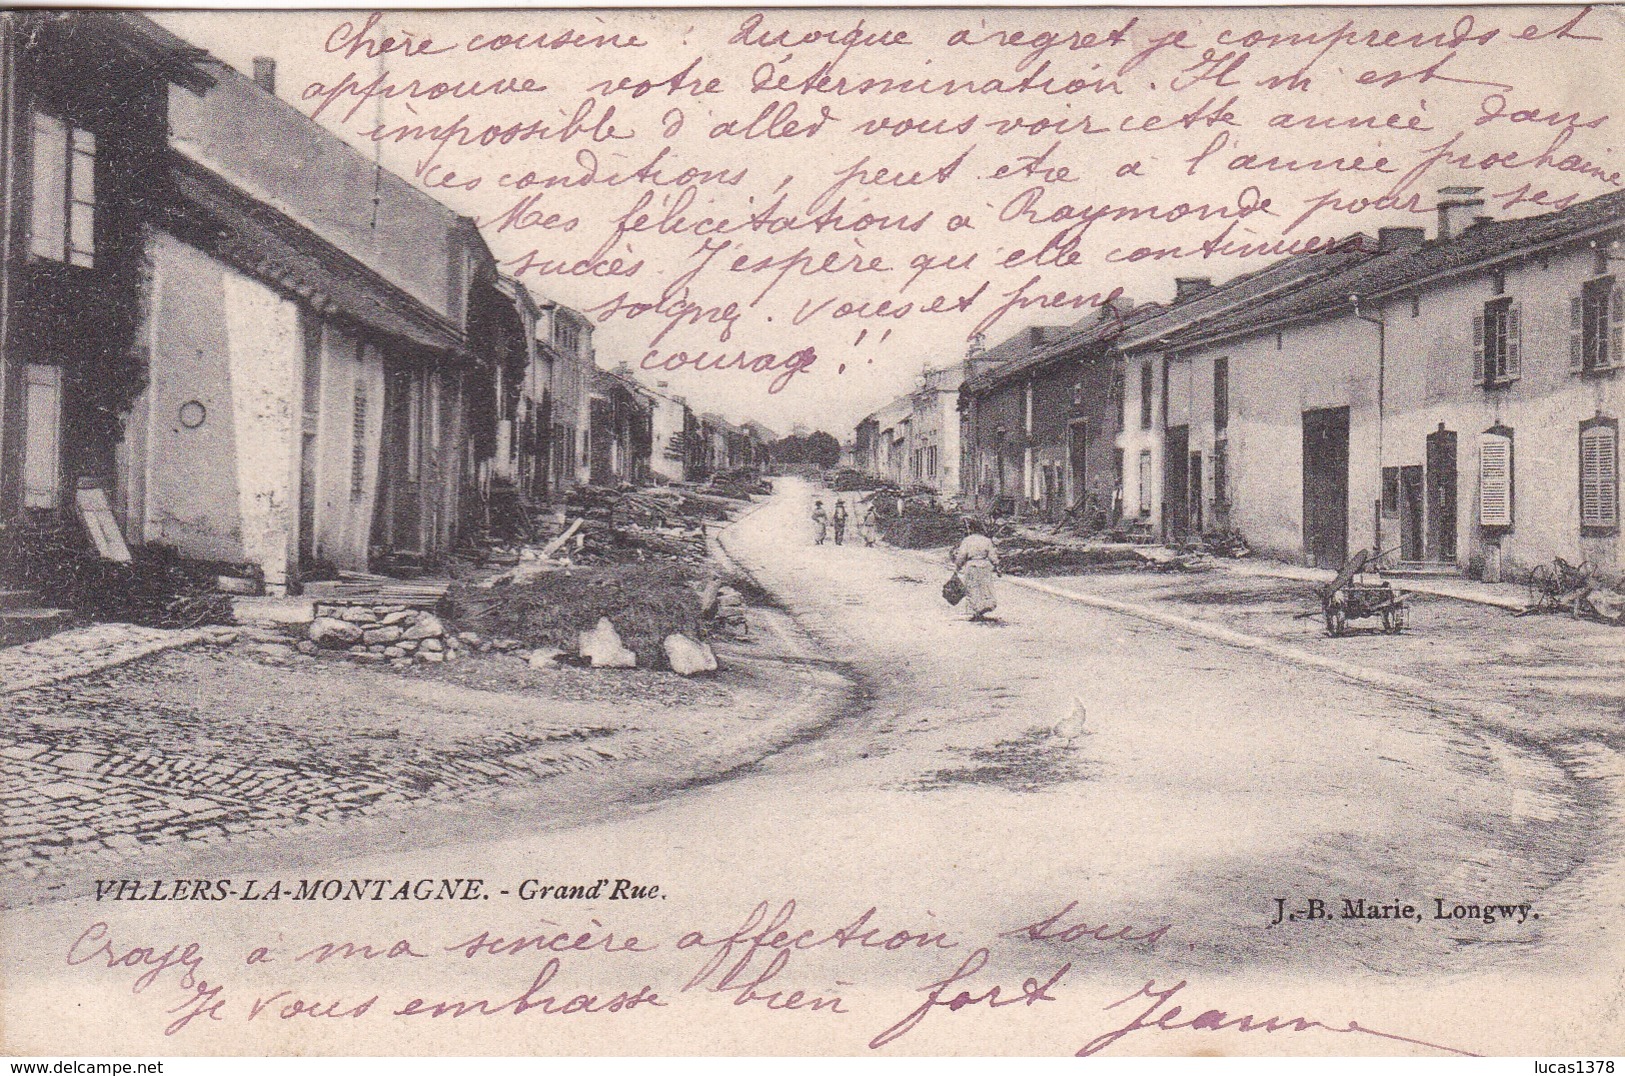 Chère cousine : Quoique à regret je comprends et
approuve votre détermination. Il m'est
impossible d'aller vous voir cette année dans
ces conditions, peut etre à l'année prochaine
Mes félicitations à Raymonde pour ses
succès. J'espère qu'elle continuera
soignez vous et prenez
courage !!
VILLERS-LA-MONTAGNE. - Grand'Rue.
J.-B. Marie, Longwy.
Croyez à ma sincère affection tous.
Je vous embrasse bien fort Jeanne
delcampe.net
lucas1378